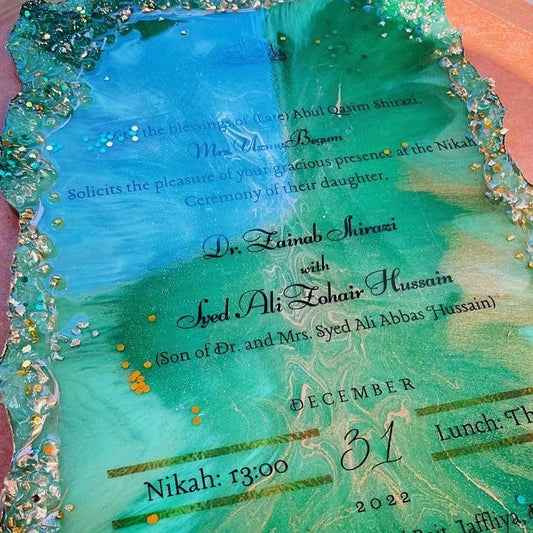 the blessings of (Late) Abul Qasim Shirazi,
Mrs Uzma Begum
Solicits the pleasure of your gracious presence at the Nikah
Ceremony of their daughter,
Dr. Zainab Shirazi
with
Syed Ali Zohair Hussain
(Son of Dr. and Mrs. Syed Ali Abbas Hussain)
DECEMBER
Nikah: 13:00
31
Lunch:
2022
Jaffliya,